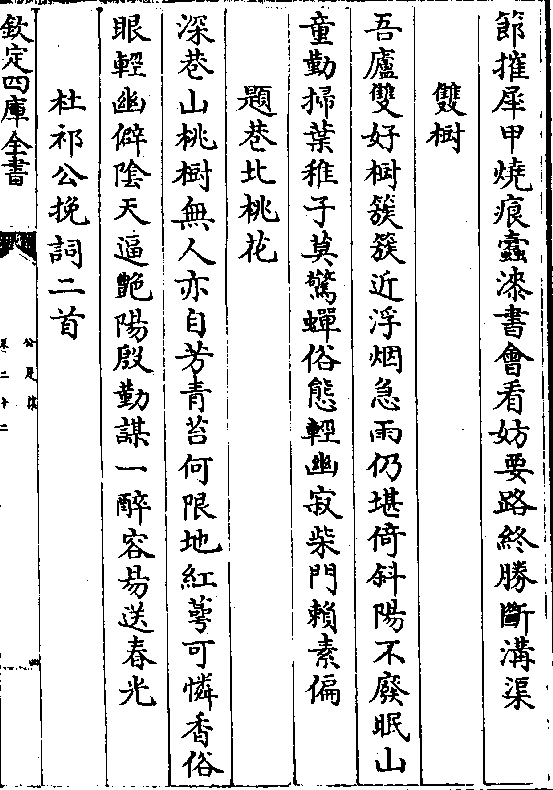 節摧犀甲燒痕蠧漆書會看妨要路終勝斷溝渠
雙樹
吾廬雙好樹簇簇近浮烟急雨仍堪倚斜陽不廢眠山
童勤掃葉稚子莫驚蟬俗態輕幽寂柴門賴素偏
題巷北桃花
深巷山桃樹無人亦自芳青苔何限地紅萼可憐香俗
眼輕幽僻陰天逼艷陽殷勤謀一醉容易送春光
杜祁公挽詞二首
欽定四庫全書
公是集
卷二十二